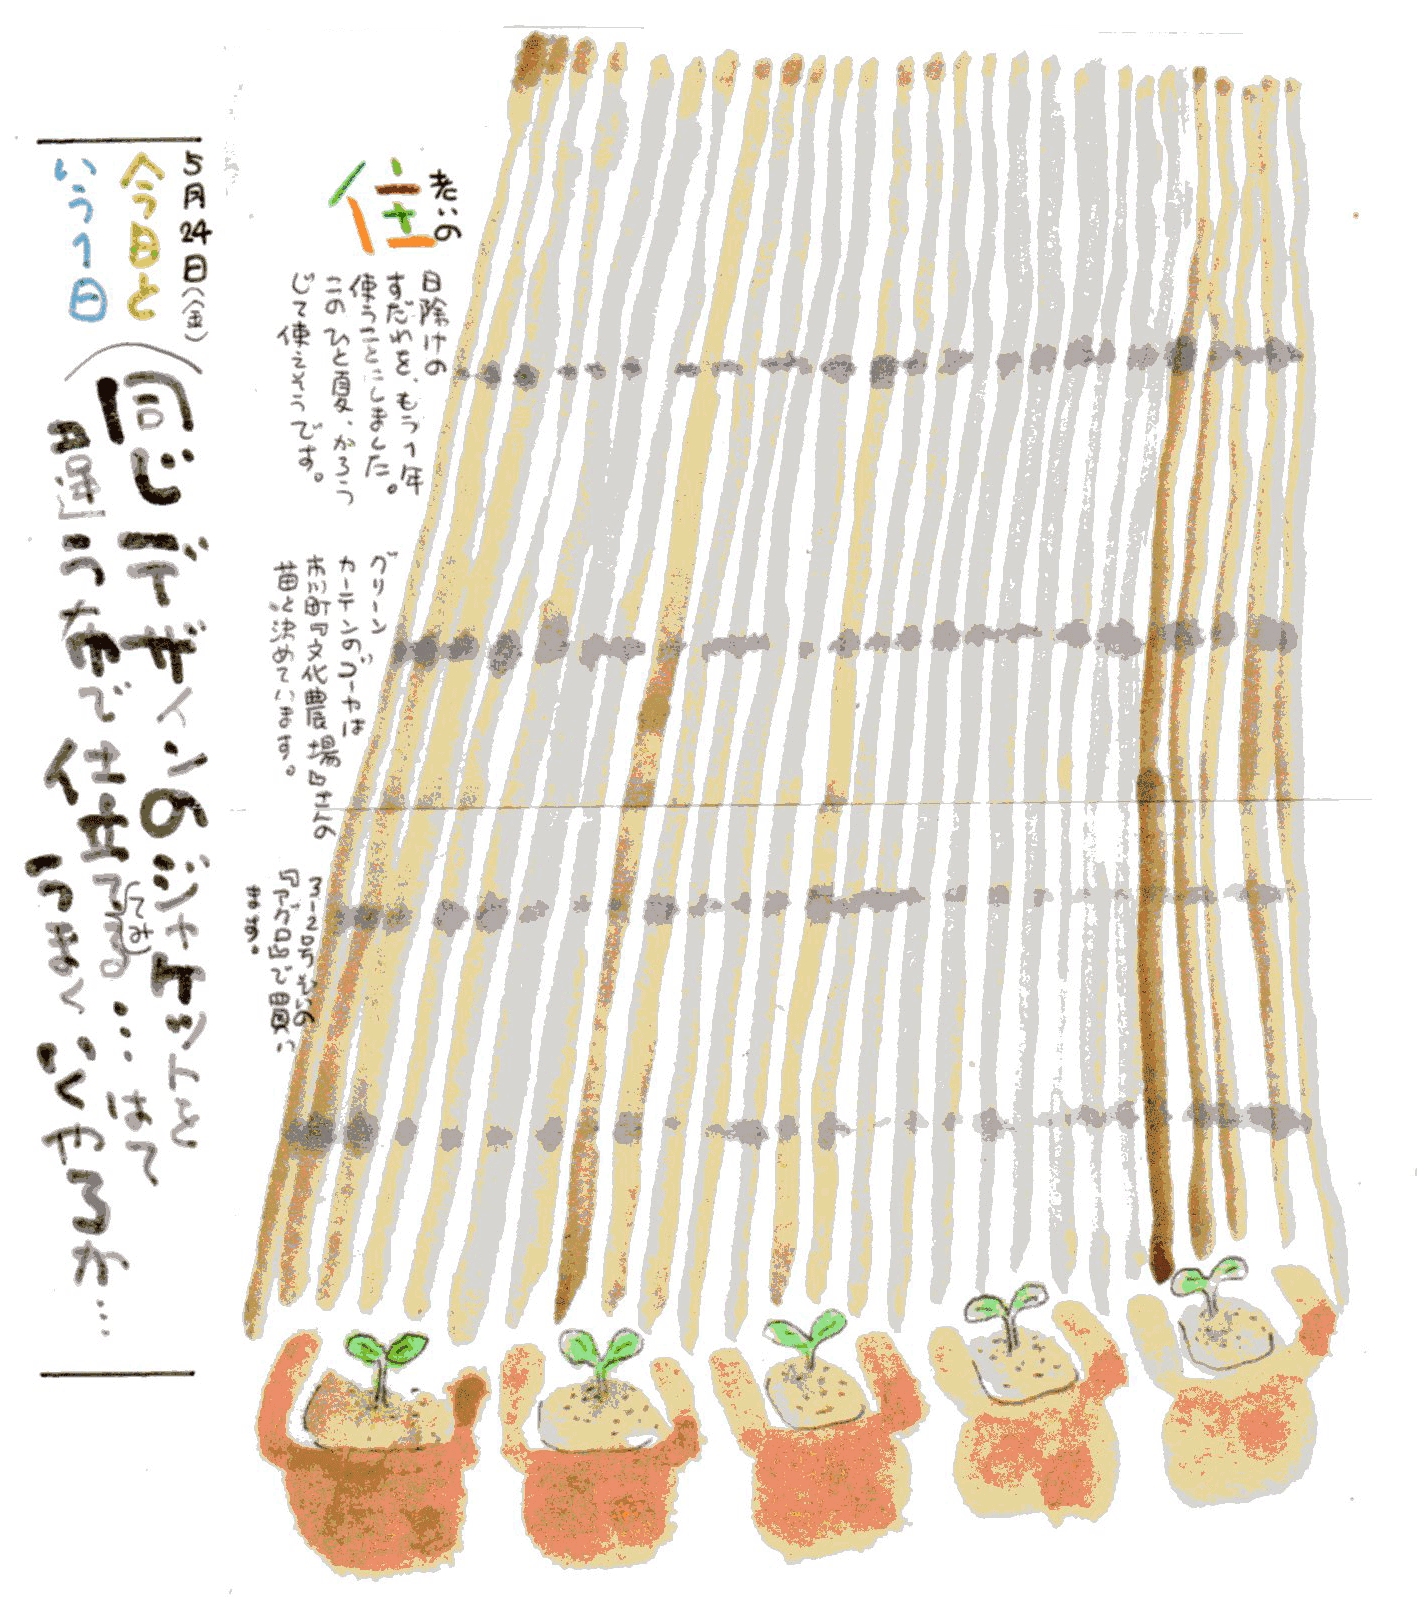 老いの
住
日除けの
すだれを、もう1年
使うことにしました。
このひと夏、かろう
じて使えそうです。
グリーン
カーテンのゴーヤは
市川町『文化農場』さんの
苗と決めています。
3~20号もの
『アグロ』で買い
ます。
5月24日(金)
今日と
いう1日
同じデザインのジャケットと
違う布で仕立てる(てみ)…はて
うまくいくやろか…